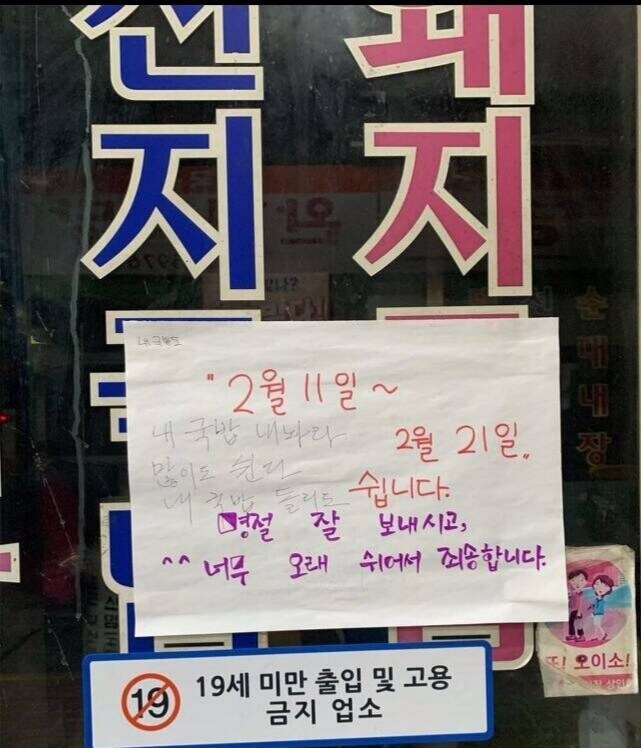 지
돼지
내 국밥도
" 2월 11일 ~
2월 21일 "
쉽니다.
내 국밥 내놔라
많이도 쉰다
내 국밥 돌리도
명절 잘 보내시고,
^^ 너무 오래 쉬어서 죄송합니다.
순대내장
또! 오이소!
19
19세 미만 출입 및 고용
금지 업소